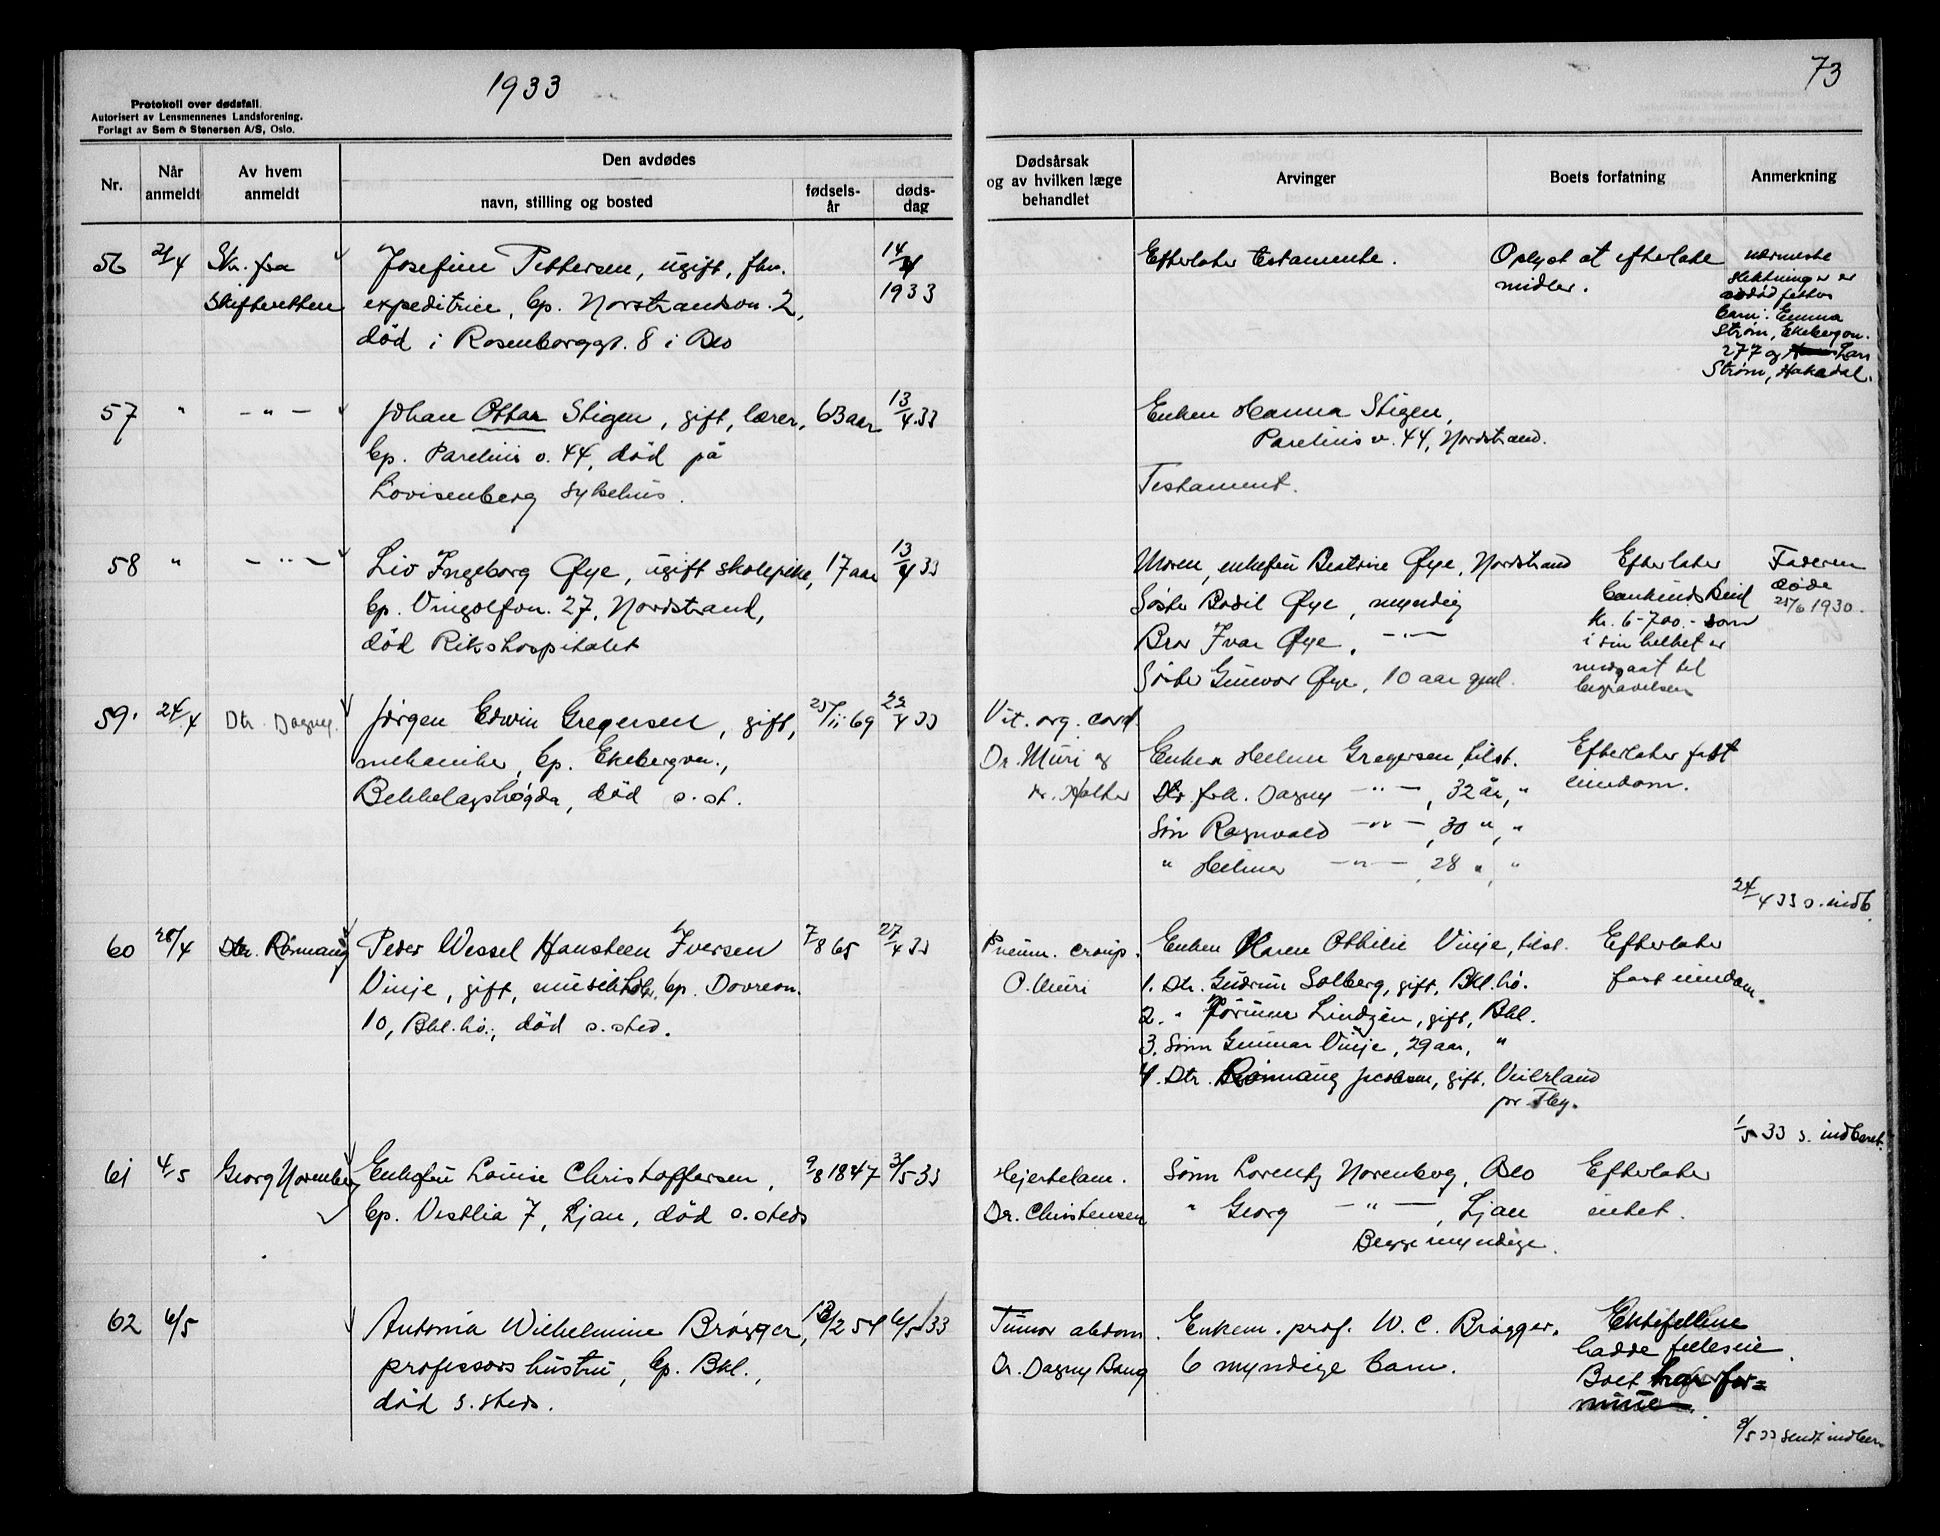 1933
73
Protokoll over dødsfall.
Autorisert av Lensmennenes Landsforening.
Forlagt av Sem & Stenersen A/S, Oslo.
Nr.
Når anmeldt
Av hvem anmeldt
Den avdødes
navn, stilling og bosted
fødselsår
dødsdag
Dødsårsak og av hvilken læge behandlet
Arvinger
Boets forfatning
Anmerkning
56 21/4 Skr. fra Skifteretten
Josefine Pettersen, ugift, fhv.
expeditrice, bp. Norstrandsvn. 2,
død i Rosenborggt. 8 i Oslo
14/4 1933
Efterlater testamente.
Oplyst at efterlate
midler.
nærmeste
slektninger er
avdød fetters
barn: Emma
Strøm, Ekebergvn.
277 og Lars
Strøm, Hakadal.
57 " - " -
Johan Ottar Stigen, gift, lærer, 63 aar 13/4.33
bp. Parelius v. 44, død på
Lovisenberg sykehus.
Enken Hanna Stigen,
Parelius v. 44, Nordstrand.
Testament.
58 " - " -
Liv Ingeborg Øye, ugift skolepike, 17 aar 13/4 33
bp. Vingolfvn. 27, Nordstrand,
død Rikshospitalet
Moren, enkefru Beatrice Øye, Nordstrand
Søster Bodil Øye, myndig
Bror Ivar Øye, - " -
Søster Gunvor Øye, 10 aar gml.
Efterlater
bankinnskud
kr. 6-700.- som
i sin helhet er
medgaat til
begravelsen
Faderen
døde
25/6 1930.
59. 24/4 Dtr. Dagny
Jørgen Edwin Gregersen, gift, 25/11 69 22/4 33
mekaniker, bp. Ekebergvn.,
Bekkelagshøgda, død s. st.
Vit. org. cord.
Dr. Muri og
dr. Holter
Enken Helene Gregersen, tilst.
Dtr frk. Dagny - " -, 32 år, "
Søn Ragnvald - " -, 30 ", "
" Helmer - " -, 28 ", "
Efterlater fast
eiendom.
24/4 33 s. indb.
60 28/4 Dtr. Rønnaug
Peder Wessel Hansteen Iversen 7/8 65 27/4 33
Vinje, gift, bp. Dovrevn.
10, Bkl.hø., død s. sted.
Pneum. croup.
D. Muri
Enken Karen Othilie Vinje, tilst.
1. Dtr. Gudrun Solberg, gift, Bkl.hø.
2. " Jørunn Lindgen, gift, Bkl.
3. Sønn Gunnar Vinje, 29 aar, "
4. Dtr. Rønnaug Jacobsen, gift, Veierland
pr. Tbg.
Efterlater
fast eiendom.
1/5 33 s. indberet.
61 4/5 Georg Norenberg
Enkefru Louise Christoffersen, 9/8 1847 3/5 33
bp. Vestlia 7, Ljan, død s. steds
Hjertelam.
Dr. Christensen
Sønn Lorentz Norenberg, Oslo
" Georg - " -, Ljan
Begge myndige.
Efterlater
intet.
62 6/5
Antonia Wilhelmine Brøgger, 13/2 54 6/5 33
professors hustru, bp. Bkl.,
død s. steds.
Tumor abdom.
Dr. Dagny Bang
Enkem. prof. W. C. Brøgger.
6 myndige barn.
Ektefellene
hadde felleseie.
Boet har for=
mue.
8/5 33 sendt indber.